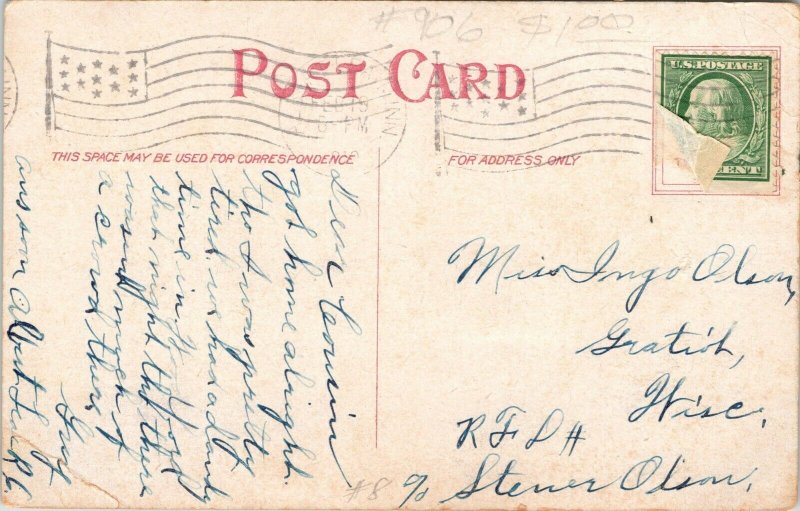 #906 $1.00
POST CARD
THIS SPACE MAY BE USED FOR CORRESPONDENCE
FOR ADDRESS ONLY
U.S. POSTAGE
CENT
Dear Cousin
got home alright.
tho I was pretty
tired. we had a dandy
time in
that night tho there
wasnt much of
a crowd there
ans soon
Miss Inga Olson,
Gratiot,
Wisc,
RFD #
#8 c/o Stener Olson,